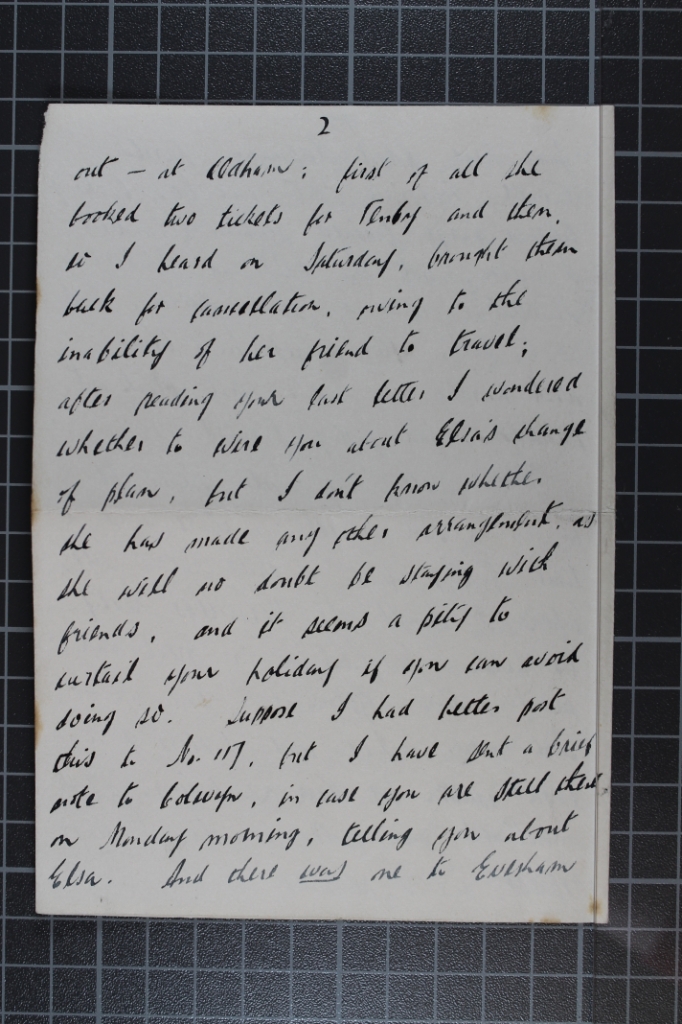 2
out – at Oldham: first of all she
booked two tickets for Tenby and then,
so I heard on Saturday, brought them
back for cancellation, owing to the
inability of her friend to travel;
after reading your last letter I wondered
whether to wire you about Elsa's change
of plan, but I don't know whether
she has made any other arrangement, as
she will no doubt be staying with
friends, and it seems a pity to
curtail your holiday if you can avoid
doing so. Suppose I had better post
this to No. 117, but I have sent a brief
note to Colwyn, in case you are still there
on Monday morning, telling you about
Elsa. And there was one to Evesham